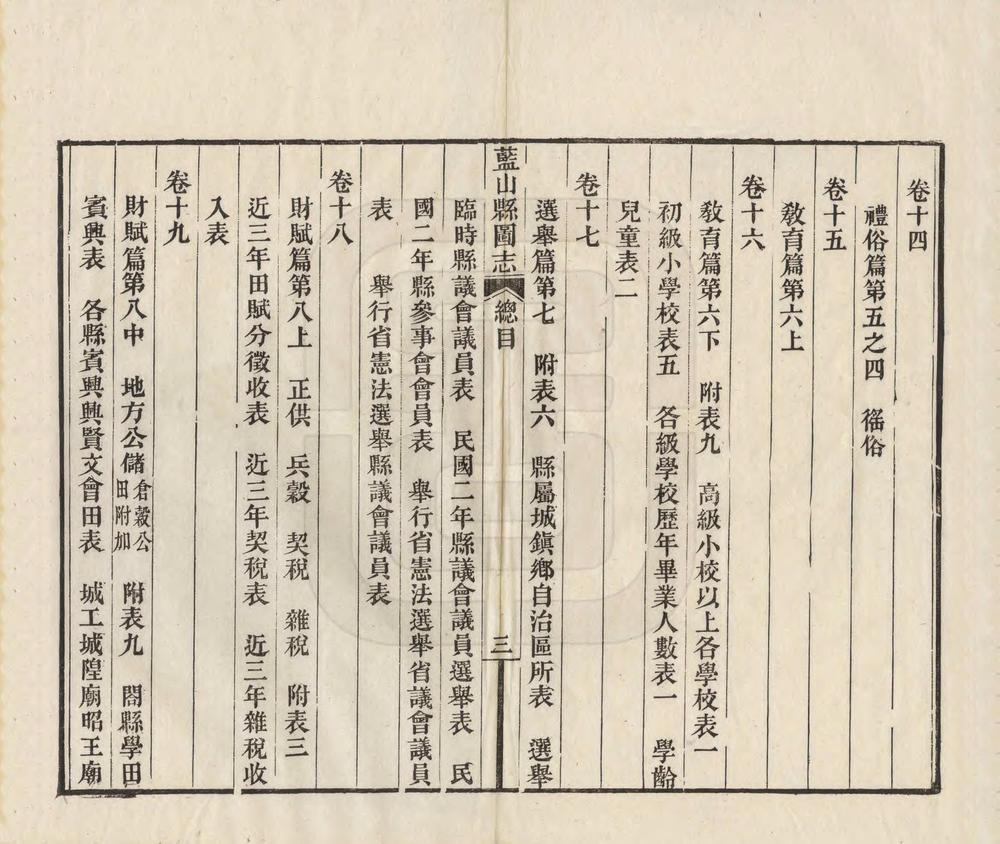 卷十四
禮俗篇第五之四　徭俗
卷十五
敎育篇第六上
卷十六
敎育篇第六下　附表九　高級小校以上各學校表一
初級小學校表五　各級學校歷年畢業人數表一　學齡
兒童表二
卷十七
選舉篇第七　附表六　縣屬城鎭鄉自治區所表　選舉
藍山縣圖志　總目　三
臨時縣議會議員表　民國二年縣議會議員選舉表　民
國二年縣參事會會員表　舉行省憲法選舉省議會議員
表　舉行省憲法選舉縣議會議員表
卷十八
財賦篇第八上　正供　兵穀　契稅　雜稅　附表三
近三年田賦分徵收表　近三年契稅表　近三年雜稅收
入表
卷十九
財賦篇第八中　地方公儲倉穀公田附加　附表九　閤縣學田
賓興表　各縣賓興興賢文會田表　城工城隍廟昭王廟